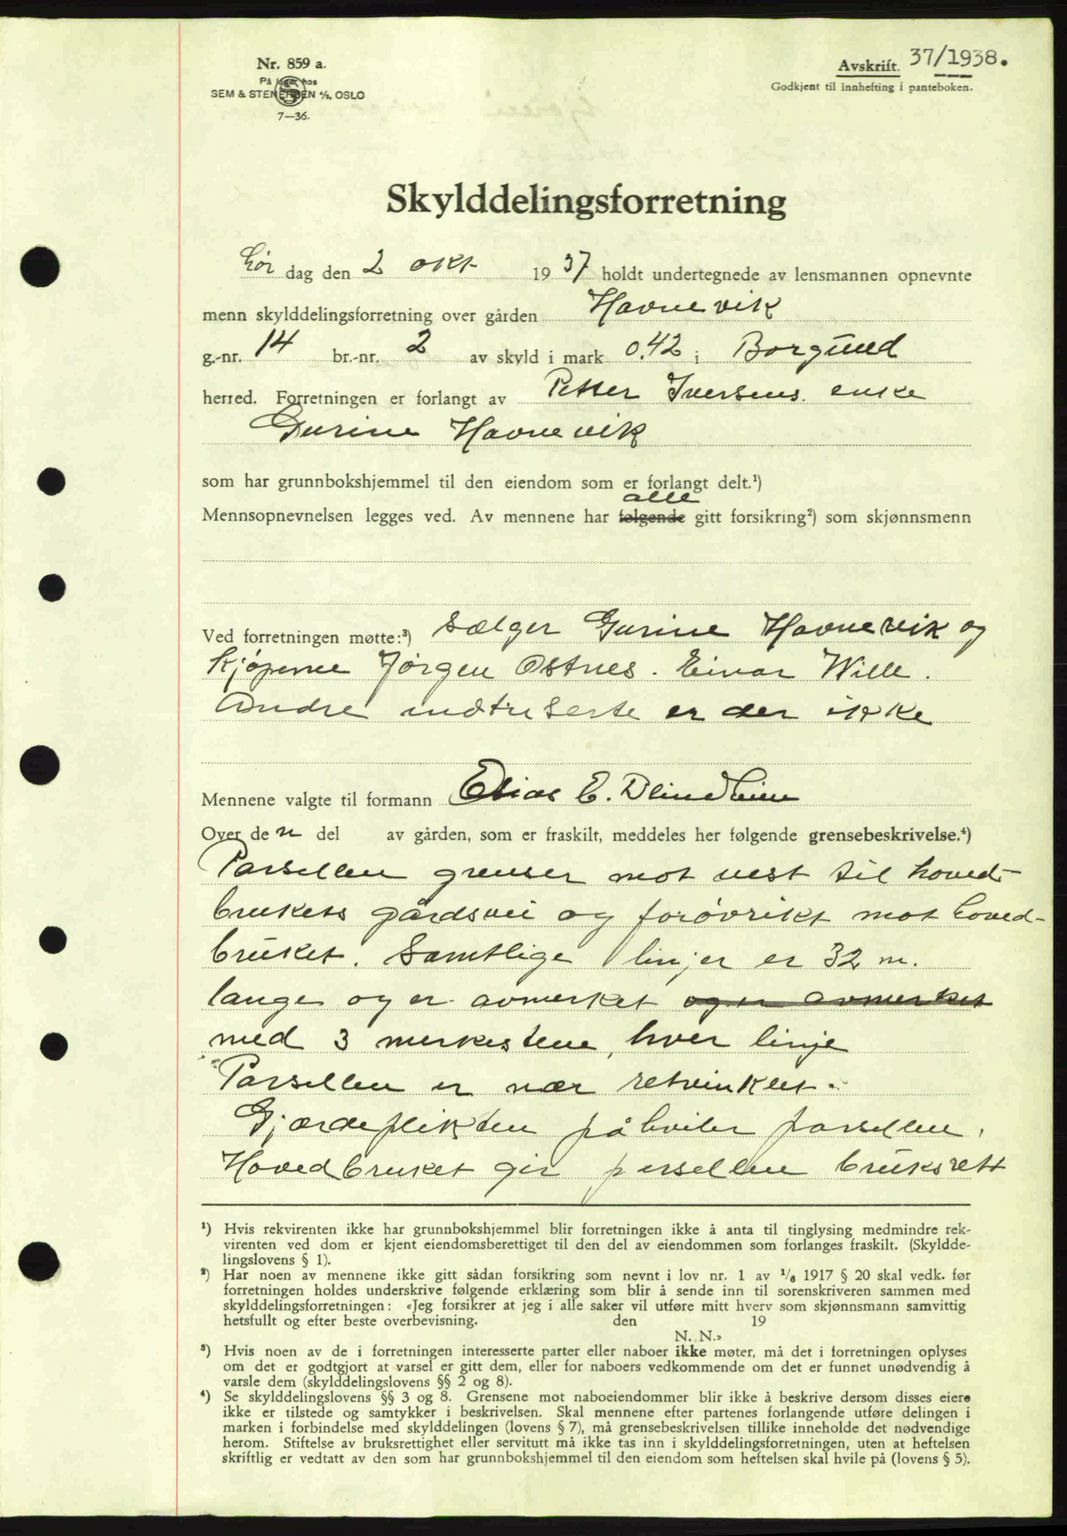 Nr. 859 a.
På lager hos
SEM & STENERSEN A/S, OSLO
7—36.
Avskrift. 37/1938.
Godkjent til innhefting i panteboken.
Skylddelingsforretning
Lør dag den 2 okt 19 37 holdt undertegnede av lensmannen opnevnte
menn skylddelingsforretning over gården Havnevik
g.-nr. 14 br.-nr. 2 av skyld i mark 0,42 i Borgund
herred. Forretningen er forlangt av Petter Iversens enke
Gurine Havnevik
som har grunnbokshjemmel til den eiendom som er forlangt delt.¹)
alle
Mennsopnevnelsen legges ved. Av mennene har følgende gitt forsikring²) som skjønnsmenn
Ved forretningen møtte:³) Sælger Gurine Havnevik og
kjøperne Jørgen Ostnes. Einar Wille.
Andre indtriserte er der ikke
Mennene valgte til formann Elias E. Blindheim
Over de n del av gården, som er fraskilt, meddeles her følgende grensebeskrivelse.⁴)
Parsellen grenser mot vest til hoved-
brukets gårdsvei og forøvrikt mot hoved-
bruket. Samtlige linjer er 32 m.
lange og er avmerket og er avmerket
med 3 merkestene, hver linje
Parsellen er nær retvinklet.
Gjærdeplikten påhviler parsellen.
Hovedbruket gir parsellen bruksrett
¹) Hvis rekvirenten ikke har grunnbokshjemmel blir forretningen ikke å anta til tinglysing medmindre rek-
virenten ved dom er kjent eiendomsberettiget til den del av eiendommen som forlanges fraskilt. (Skyldde-
lingslovens § 1).
²) Har noen av mennene ikke gitt sådan forsikring som nevnt i lov nr. 1 av 1/6 1917 § 20 skal vedk. før
forretningen holdes underskrive følgende erklæring som blir å sende inn til sorenskriveren sammen med
skylddelingsforretningen: «Jeg forsikrer at jeg i alle saker vil utføre mitt hverv som skjønnsmann samvittig
hetsfullt og efter beste overbevisning. den 19
N. N.»
³) Hvis noen av de i forretningen interesserte parter eller naboer ikke møter, må det i forretningen oplyses
om det er godtgjort at varsel er gitt dem, eller for naboers vedkommende om det er funnet unødvendig å
varsle dem (skylddelingslovens §§ 2 og 8).
⁴) Se skylddelingslovens §§ 3 og 8. Grensene mot naboeiendommer blir ikke å beskrive dersom disses eiere
ikke er tilstede og samtykker i beskrivelsen. Skal mennene efter partenes forlangende utføre delingen i
marken i forbindelse med skylddelingen (lovens § 7), må grensebeskrivelsen tillike inneholde det nødvendige
herom. Stiftelse av bruksrettighet eller servitutt må ikke tas inn i skylddelingsforretningen, uten at heftelsen
skriftlig er vedtatt av den som har grunnbokshjemmel til den eiendom som heftelsen skal hvile på (lovens § 5).